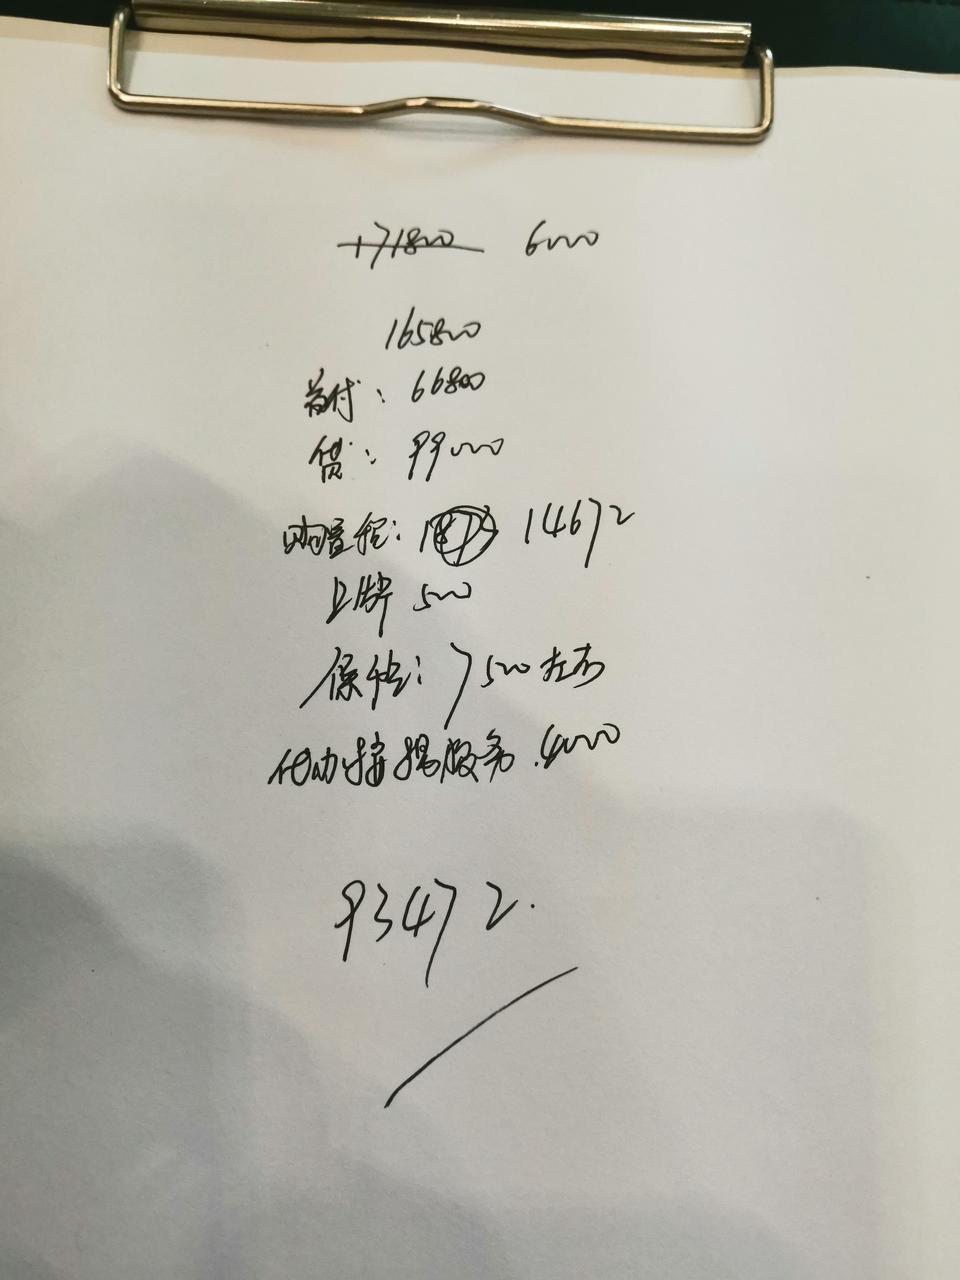 171800 6000
165800
首付：66800
贷：99000
购置税：14672
上牌 500
保险：7500左右
代办按揭服务.4000
93472.